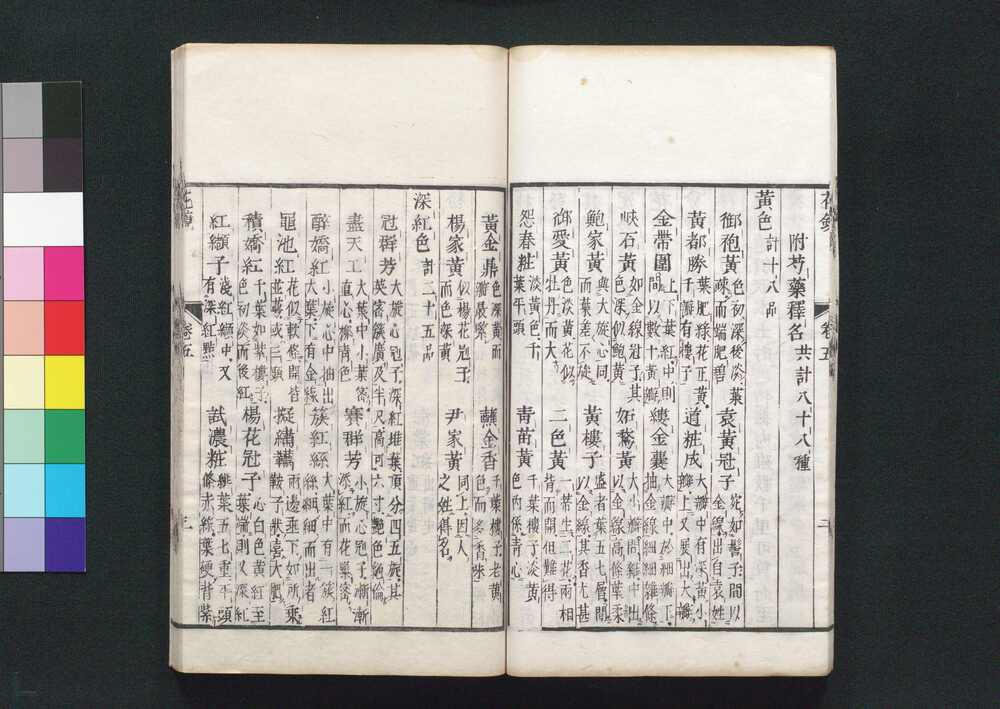 花鏡 卷五
附芍藥釋名 共計八十八種
黃色 計十八品
御袍黃 色初深後淡葉疎而端肥碧 袁黃冠子 宛如髻子間以金線出自袁姓
黃都勝 葉肥綠花正黃千瓣有樓子 道粧成 大瓣中有深黃小瓣上又展出大瓣
金帶圍 上下葉紅中則間以數十黃瓣 縷金囊 大瓣中於細瓣下抽金線細細雜條
峽石黃 如金線冠子其色深似鮑黃 妬鵞黃 大小瓣間雜中出以金線高條葉柔
鮑家黃 與大旋心同而葉差不旋 黃樓子 盛者葉五七層間以金線其香尤甚
御愛黃 色淡黃花似牡丹而大 二色黃 一蒂生二花兩相背而開但難得
怨春粧 淡黃色千葉平頭 青苗黃 千葉樓子淡黃色內係青心
黃金鼎 色深黃而瓣最緊 蘸金香 千葉樓子老黃色而多香味
楊家黃 似楊花冠子而色深黃 尹家黃 同上因人之姓得名
深紅色 計二十五品
冠群芳 大旋心冠子深紅堆葉頂分四五旋其英密簇廣及半尺高可六寸艷色絕倫
盡天工 大葉中小葉密直心媚情色 賽群芳 小旋心冠子漸漸添紅而花緊密
醉嬌紅 小旋心中抽出大葉下有金線 簇紅絲 大葉中有簇紅絲細細而出者
龜池紅 花似軟條開皆並萼或三頭 擬繡韉 兩邊垂下如所乘鞍子狀喜大肥
積嬌紅 千葉如紫樓子色初淡而後紅 楊花冠子 心白色黃紅至葉端則又深紅
紅纈子 淺紅纈中又有深紅點 試濃粧 緋葉五七重平頭條赤綠葉硬背紫
花鏡 卷五 三